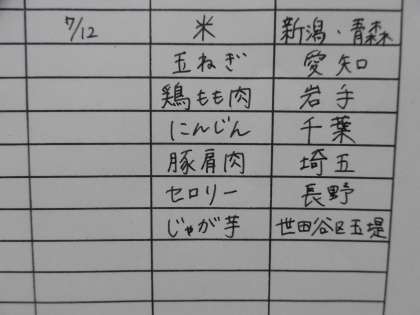 7/12 米 新潟・青森
玉ねぎ 愛知
鶏もも肉 岩手
にんじん 千葉
豚肩肉 埼玉
セロリー 長野
じゃが芋 世田谷区玉堤